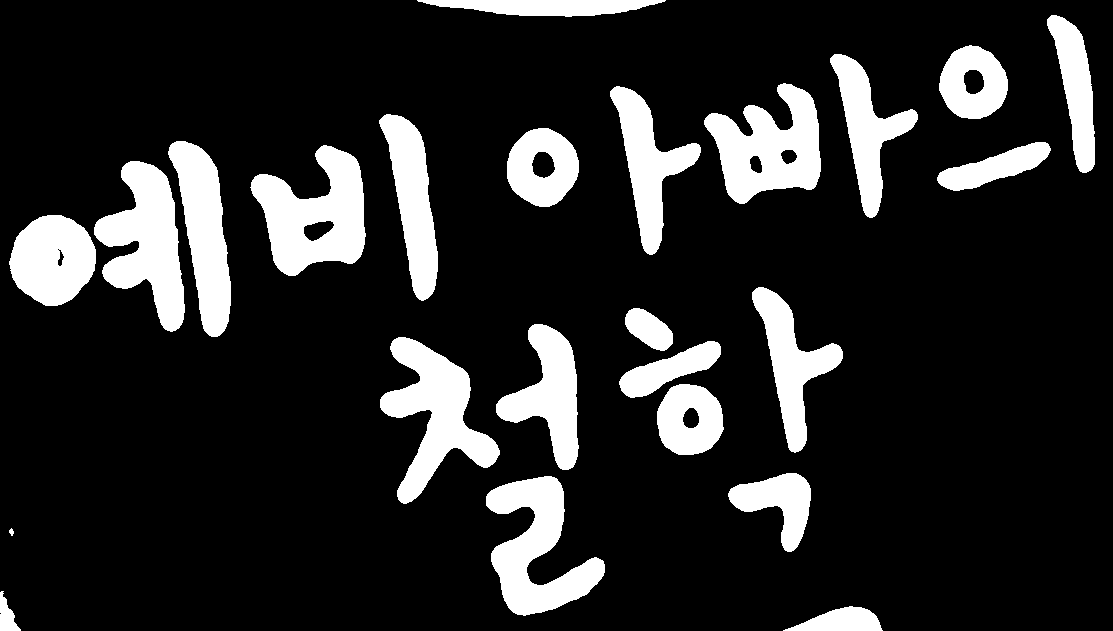 예비 아빠의
철학